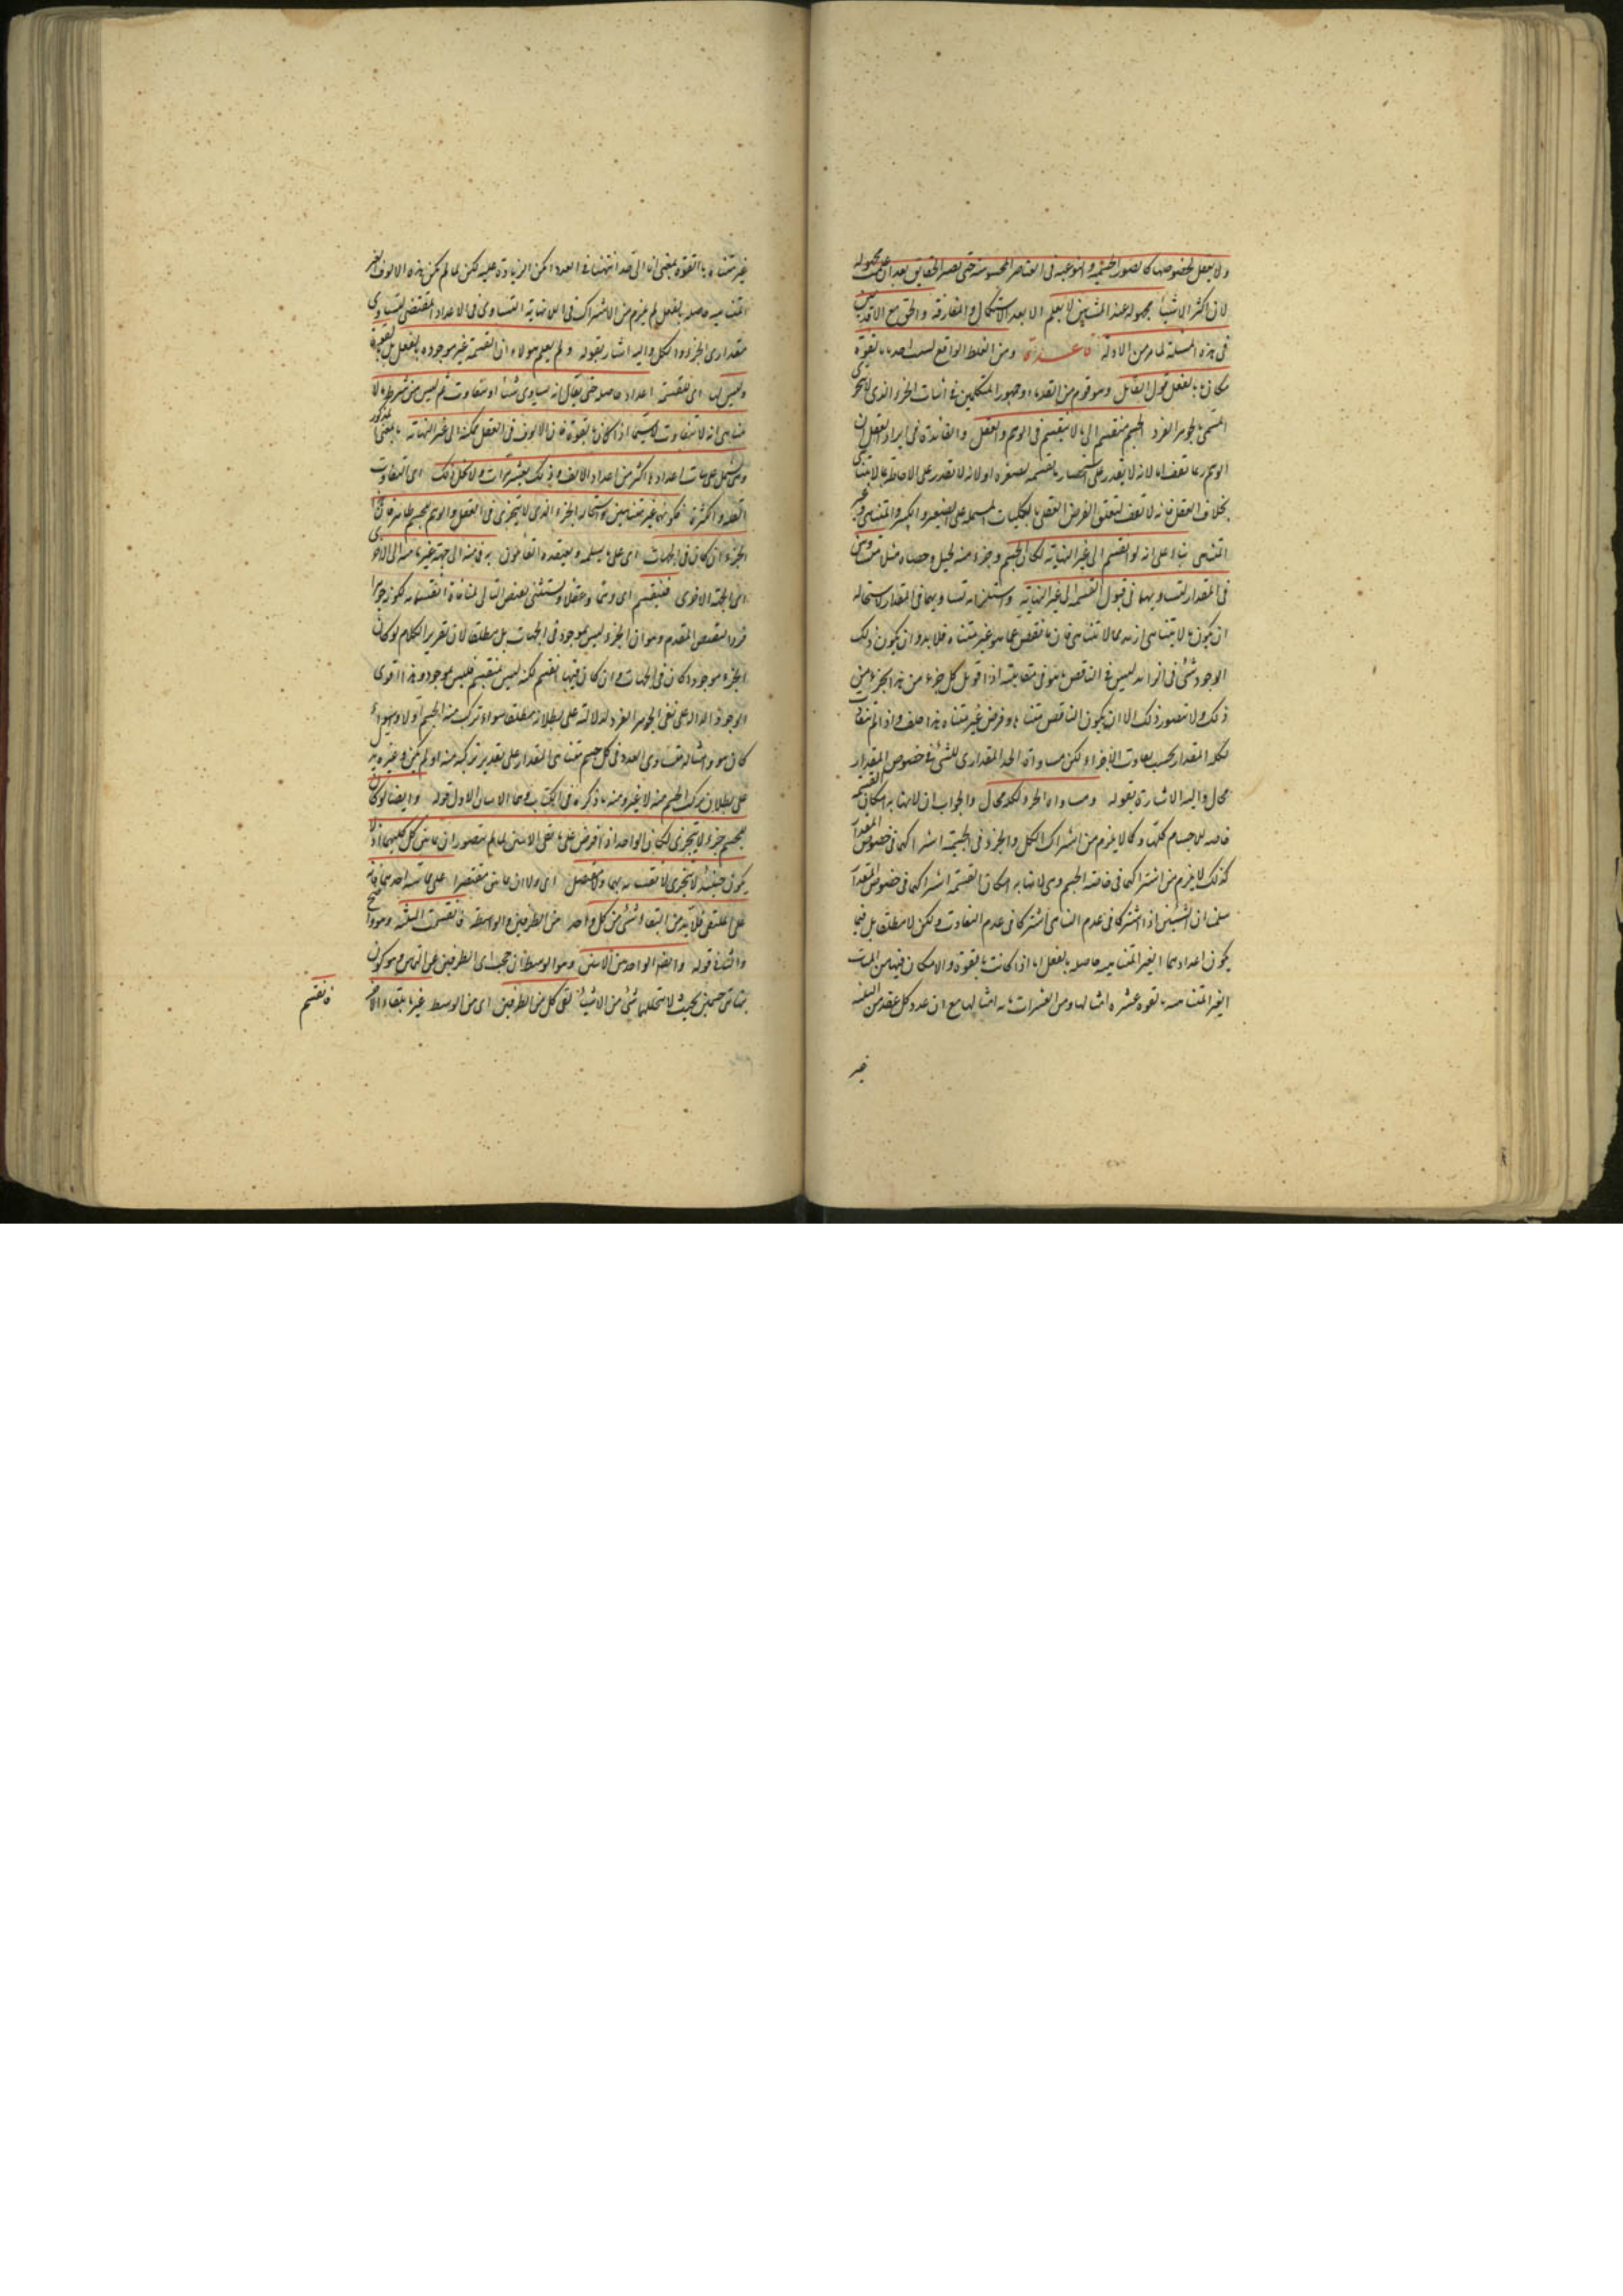 ولا يعقل بخصوصها كالصور الجسمية والنوعية فى العناصر المحسوسة حتى يصير الحقايق بعد ان علمت مجهولة
لان اكثر الاشياء مجهولة عند المشائين لا يعلم الا بعد الاستكمال والمفارقة والحق مع الاقدمين
فى هذه المسئلة لما مر من الادلة قاعدة ومن الغلط الواقع بسبب اخذ ما بالقوة
مكان ما بالفعل قول القائل وهو قوم من القدماء وجمهور المتكلمين فى اثبات الجزء الذى لا يتجزى
المسمى بالجوهر الفرد الجسم منقسم الى ما لا ينقسم فى الوهم والعقل والفائدة فى ايراد العقل ان
الوهم ربما تقف اما لانه لا يقدر على استحضار ما يقسمه لصغره او لانه لا تقدر على الاحاطة بما لا يتناهى
بخلاف العقل فانه لا تقف لتعلق الفرض العقلى بالكليات المشتملة على الصغير والكبير والمتناهى وغير
المتناهى بناء على انه لو انقسم الى غير النهاية لكان الجسم وجزء منه كجبل وحصاة مثلا متساويين
فى المقدار لتساويهما فى قبول القسمة الى غير النهاية واستلزامه تساويهما فى المقدار لاستحالة
ان يكون ما لا يتناهى ازيد مما لا تتناهى فان ما نقص عما هو غير متناه فلا بد وان يكون ذلك
الوجود شئ فى الزائد ليس فى الناقص ما هو فى مقابلته اذا قوبل كل جزء من هذا بجزء من
ذلك ولا يتصور ذلك الا ان يكون الناقص متناهيا وفرض غير متناه هذا خلف واذا لم يتفاوت
لكل المقدار بحسب تفاوت الاجزاء ولكن مساواة الجزء المقدارى للشئ فى خصوص المقدار
محال واليه الاشارة بقوله ومساواة الجزء لكله محال والجواب ان لا نهاية امكان القسمة
خاصة للاجسام كلها وكما لا يلزم من اشتراك الكل والجزء فى الجسمية اشتراكهما فى خصوص المقدار
كذلك لا يلزم من اشتراكهما فى خاصة الجسم وهى لا نهاية امكان القسمة اشتراكهما فى خصوص المقدار
سلمنا ان الشيئين اذا اشتركا فى عدم التناهى اشتركا فى عدم التفاوت ولكن لا مطلقا بل فيما
يكون اعدادهما الغير المتناهية حاصلة بالفعل اما اذا كانت بالقوة والامكان فيها من المئات
الغير المتناهية بالقوة عشرة امثالها ومن العشرات مائة امثالها مع ان عدد كل عقد من الثلثة
غير
غير متناه بالقوة بمعنى انه الى حد انتهيت فى العدد امكن الزيادة عليه لكن لما لم تكن هذه الالوف الغير
المتناهية حاصلة بالفعل لم يلزم من الاشتراك فى اللانهاية التساوى فى الاعداد المقتضى لتساوى
مقدارى الجزء والكل واليه اشار بقوله ولم يعلم هؤلاء ان القسمة غير موجودة بالفعل بل بالقوة
وليس لها اى للقسمة اعداد حاصلة حتى يقال انه يساوى شيئا او يتفاوت ثم ليس من شرط ما لا
يتناهى انه لا يتفاوت لا سيما اذا كان بالقوة فان الالوف فى العقل ممكنة الى غير النهاية بالمعنى المذكور
وتشتمل على مئات اعدادها اكثر من اعداد الالف وذلك بعشر مرات ولا يخل ذلك اى التفاوت
بالعدد والكثرة بكونها غير متناهيتين واستحالة الجزء الذى لا يتجزى فى العقل والوهم للجسم ظاهر فان
الجزء ان كان فى الجهات اى على ما يسلمه ويعتقده القائلون به فما منه الى جهة غير ما منه الى الاخرى
اى الجهة الاخرى فينقسم اى وهما وعقلا ويستثنى نقيض التالى لمنافاة انقسامه لكونه جوهرا
فردا لنقيض المقدم وهو ان الجزء وليس بموجود فى الجهات بل مطلقا لان تقرير الكلام لو كان
الجزء موجودا كان فى الجهات وان كان فيها انقسم لكنه ليس منقسم فليس بموجود وهذا اقوى
الوجوه الدالة على نفى الجوهر الفرد لدلالته على بطلانه مطلقا سواء تركب منه الجسم او لا وسواء
كان هو وامثاله متساوى العدد فى كل جسم متناهى المقدار على تقدير تركبه منه او لم يكن وغيره يدل
على بطلان تركب الجسم منه لا غير ومنه ما ذكره فى الكتاب وهما الاثنان الاول قوله وايضا لو كان
للجسم جزء لا يتجزى لكان الواحد اذا فرض على ملتقى الاثنين لما لم يتصور ان يماس كل كليهما اذ لا
يكون حينئذ لا يتجزى لانقسامه بهما ولا يتصل اى ولا ان يماس مقتصرا على مماسة احدهما فانه
على الملتقى فلا بد من التقاء شئ من كل واحد من الطرفين والواسطة فانقسمت الثلثة وهو واضح
والثانى قوله وايضا الواحد بين الاثنين وهو الوسط ان حجب اى الطرفين عن التماس وهو كون
متماسين بحيث لا يتخللهما شئ من الاشياء لقى كل من الطرفين اى من الوسط غير ما يلقاه الاخر
فانقسم